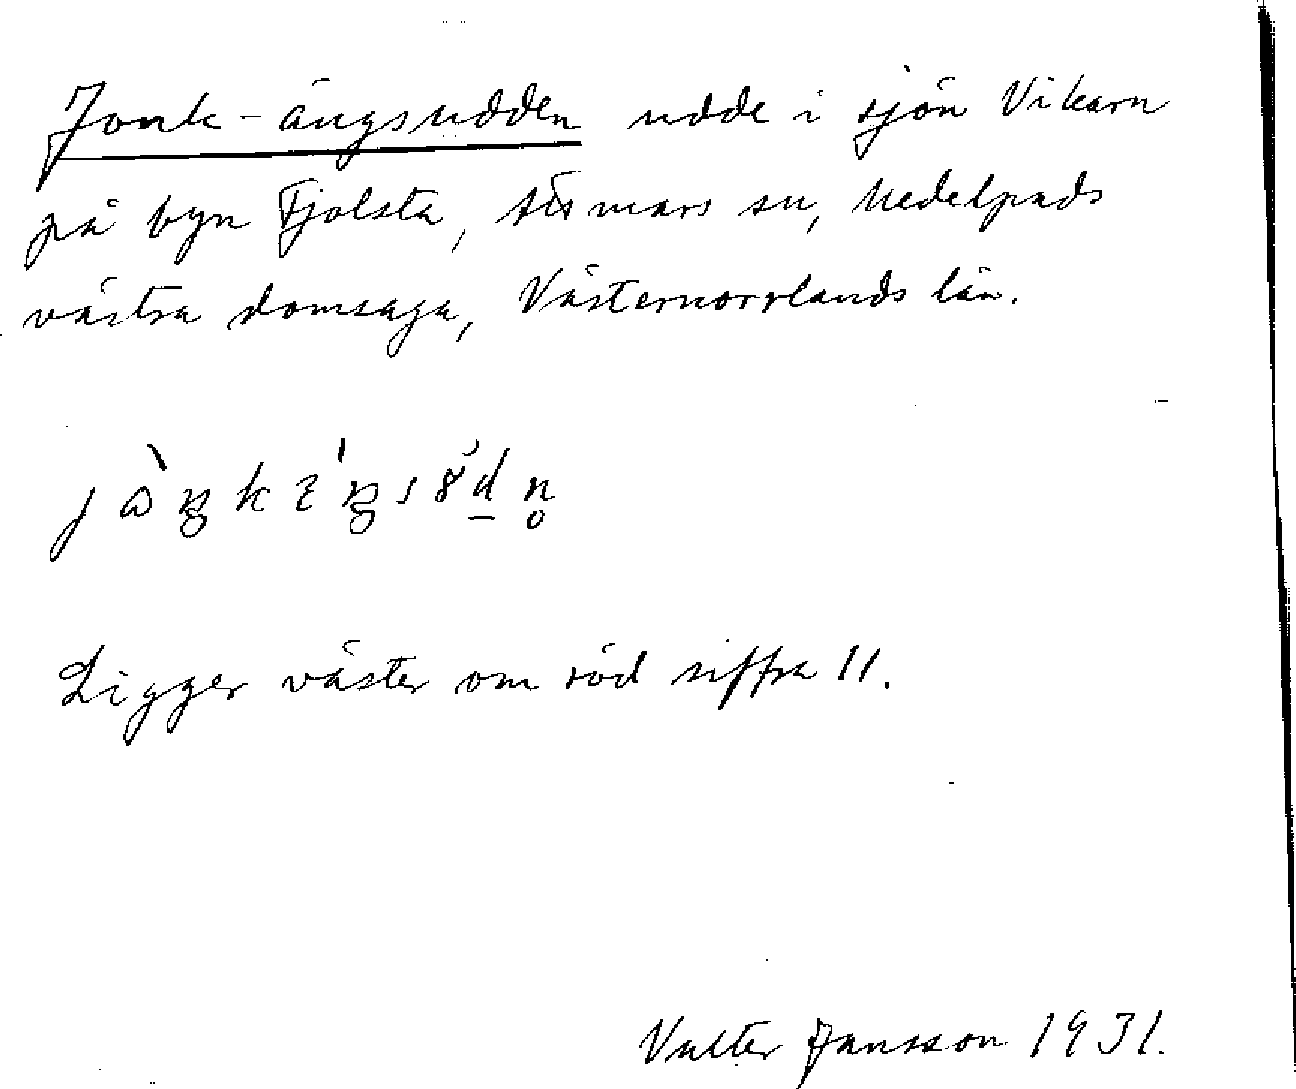 Jonk-ängsudden udde i sjön Vikarn
på byn Fjolsta, Attmars sn, Medelpads
västra domsaga, Västernorrlands län.
Ligger väster om röd siffra 11.
Valter Jansson 1931.